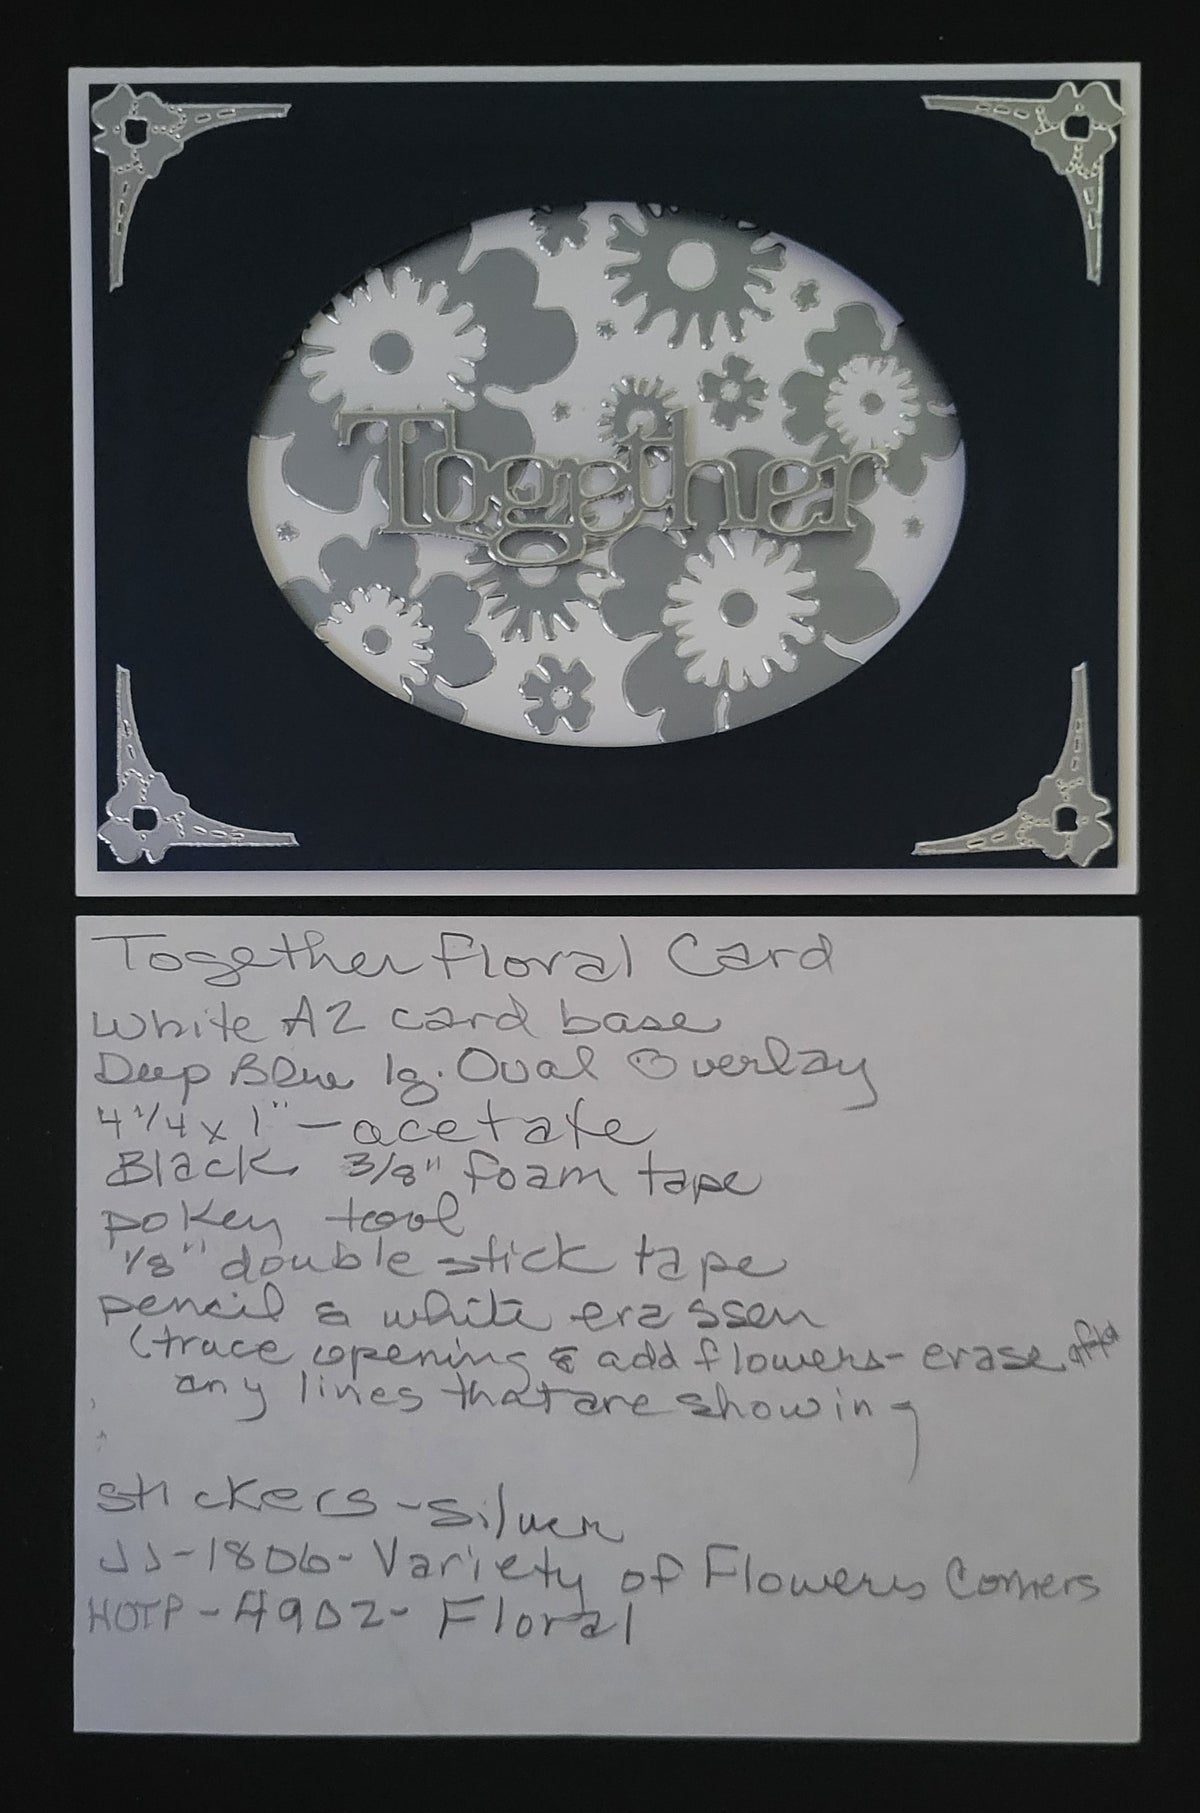 Together
Together Floral Card
White A2 card base
Deep Blue lg. Oval Overlay
4 1/4 x 1" - acetate
Black 3/8" foam tape
pokey tool
1/8" double stick tape
pencil & white erasser
(trace opening & add flowers - erase after
any lines that are showing
stickers - silver
JJ-1806 - Variety of Flowers Corners
HOTP - 4902 - Floral